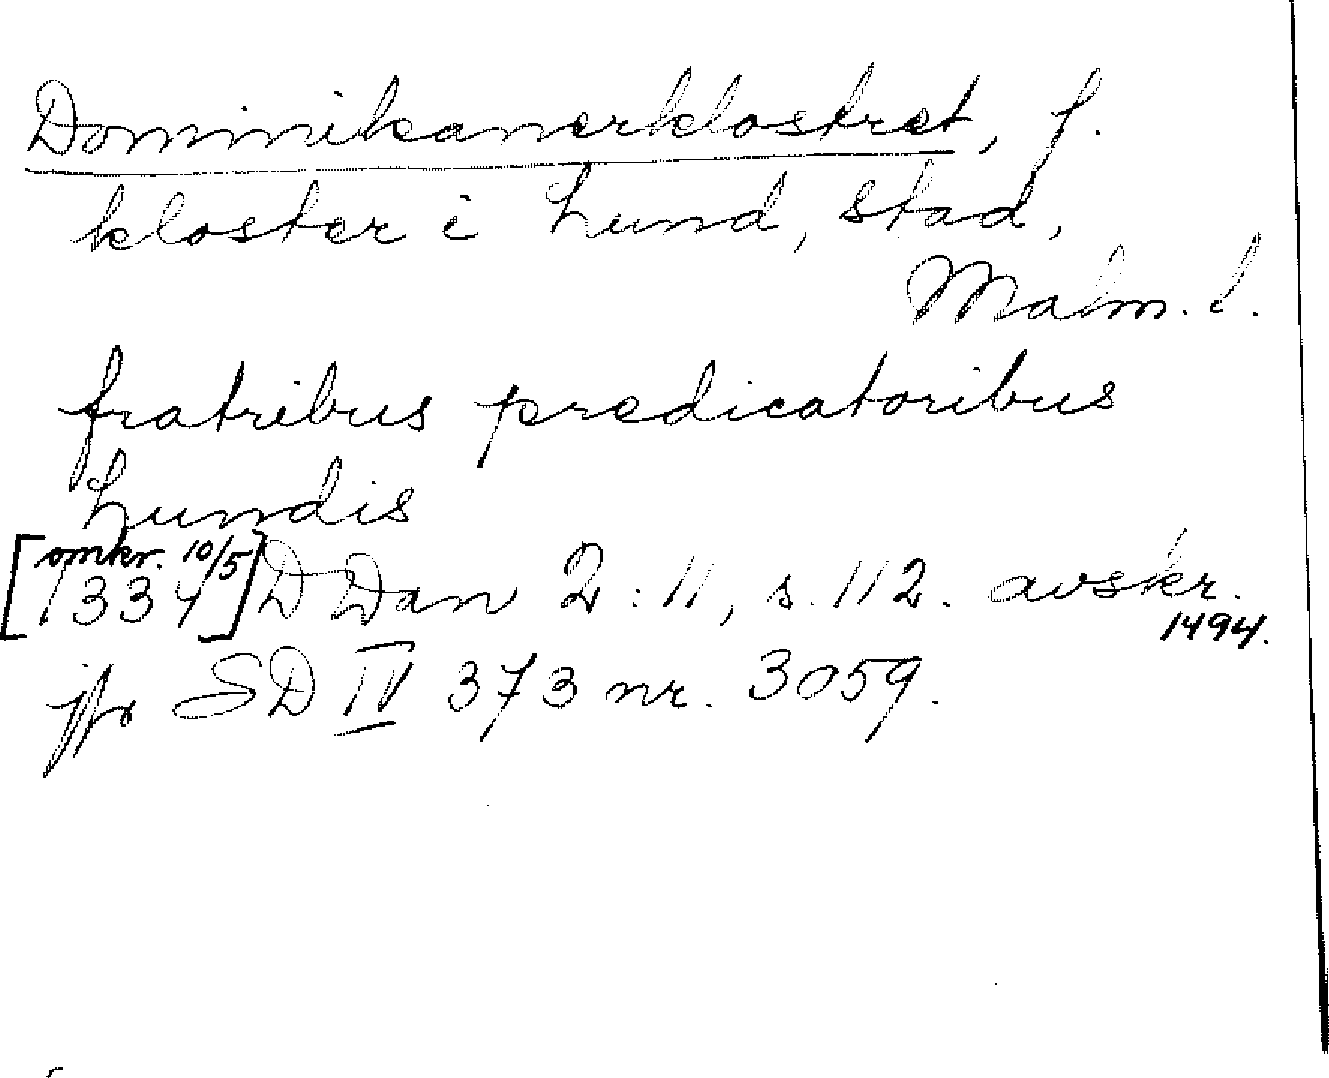 Dominikanerklostret, f.
kloster i Lund, stad,
Malm. l.
fratribus predicatoribus
Lundis
[omkr. 10/5
1334] DDan 2:11, s. 112. avskr.
1494.
jfr SD IV 373 nr. 3059.